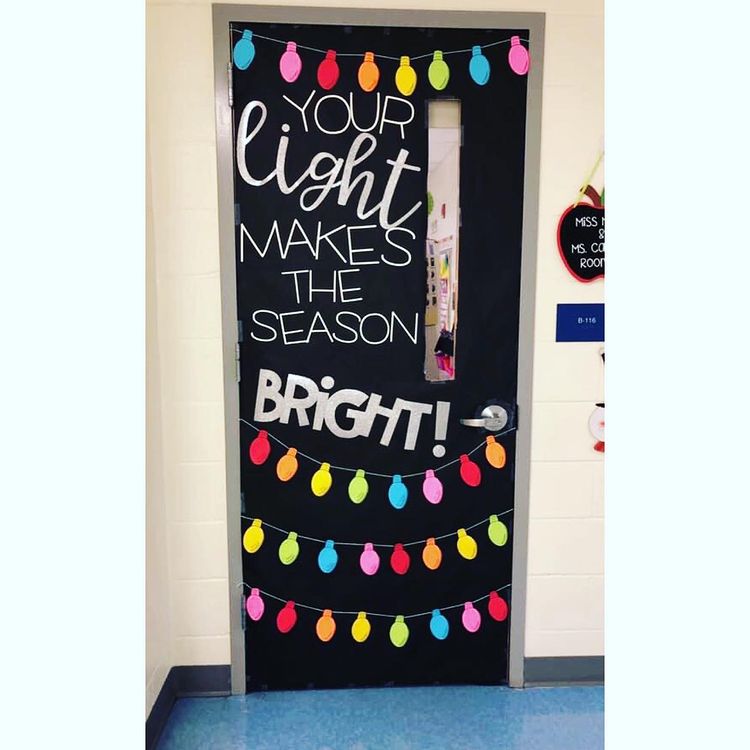 YOUR
light
MAKES
THE
SEASON
BRiGHT!
MISS
&
MS.
ROOM
B-116